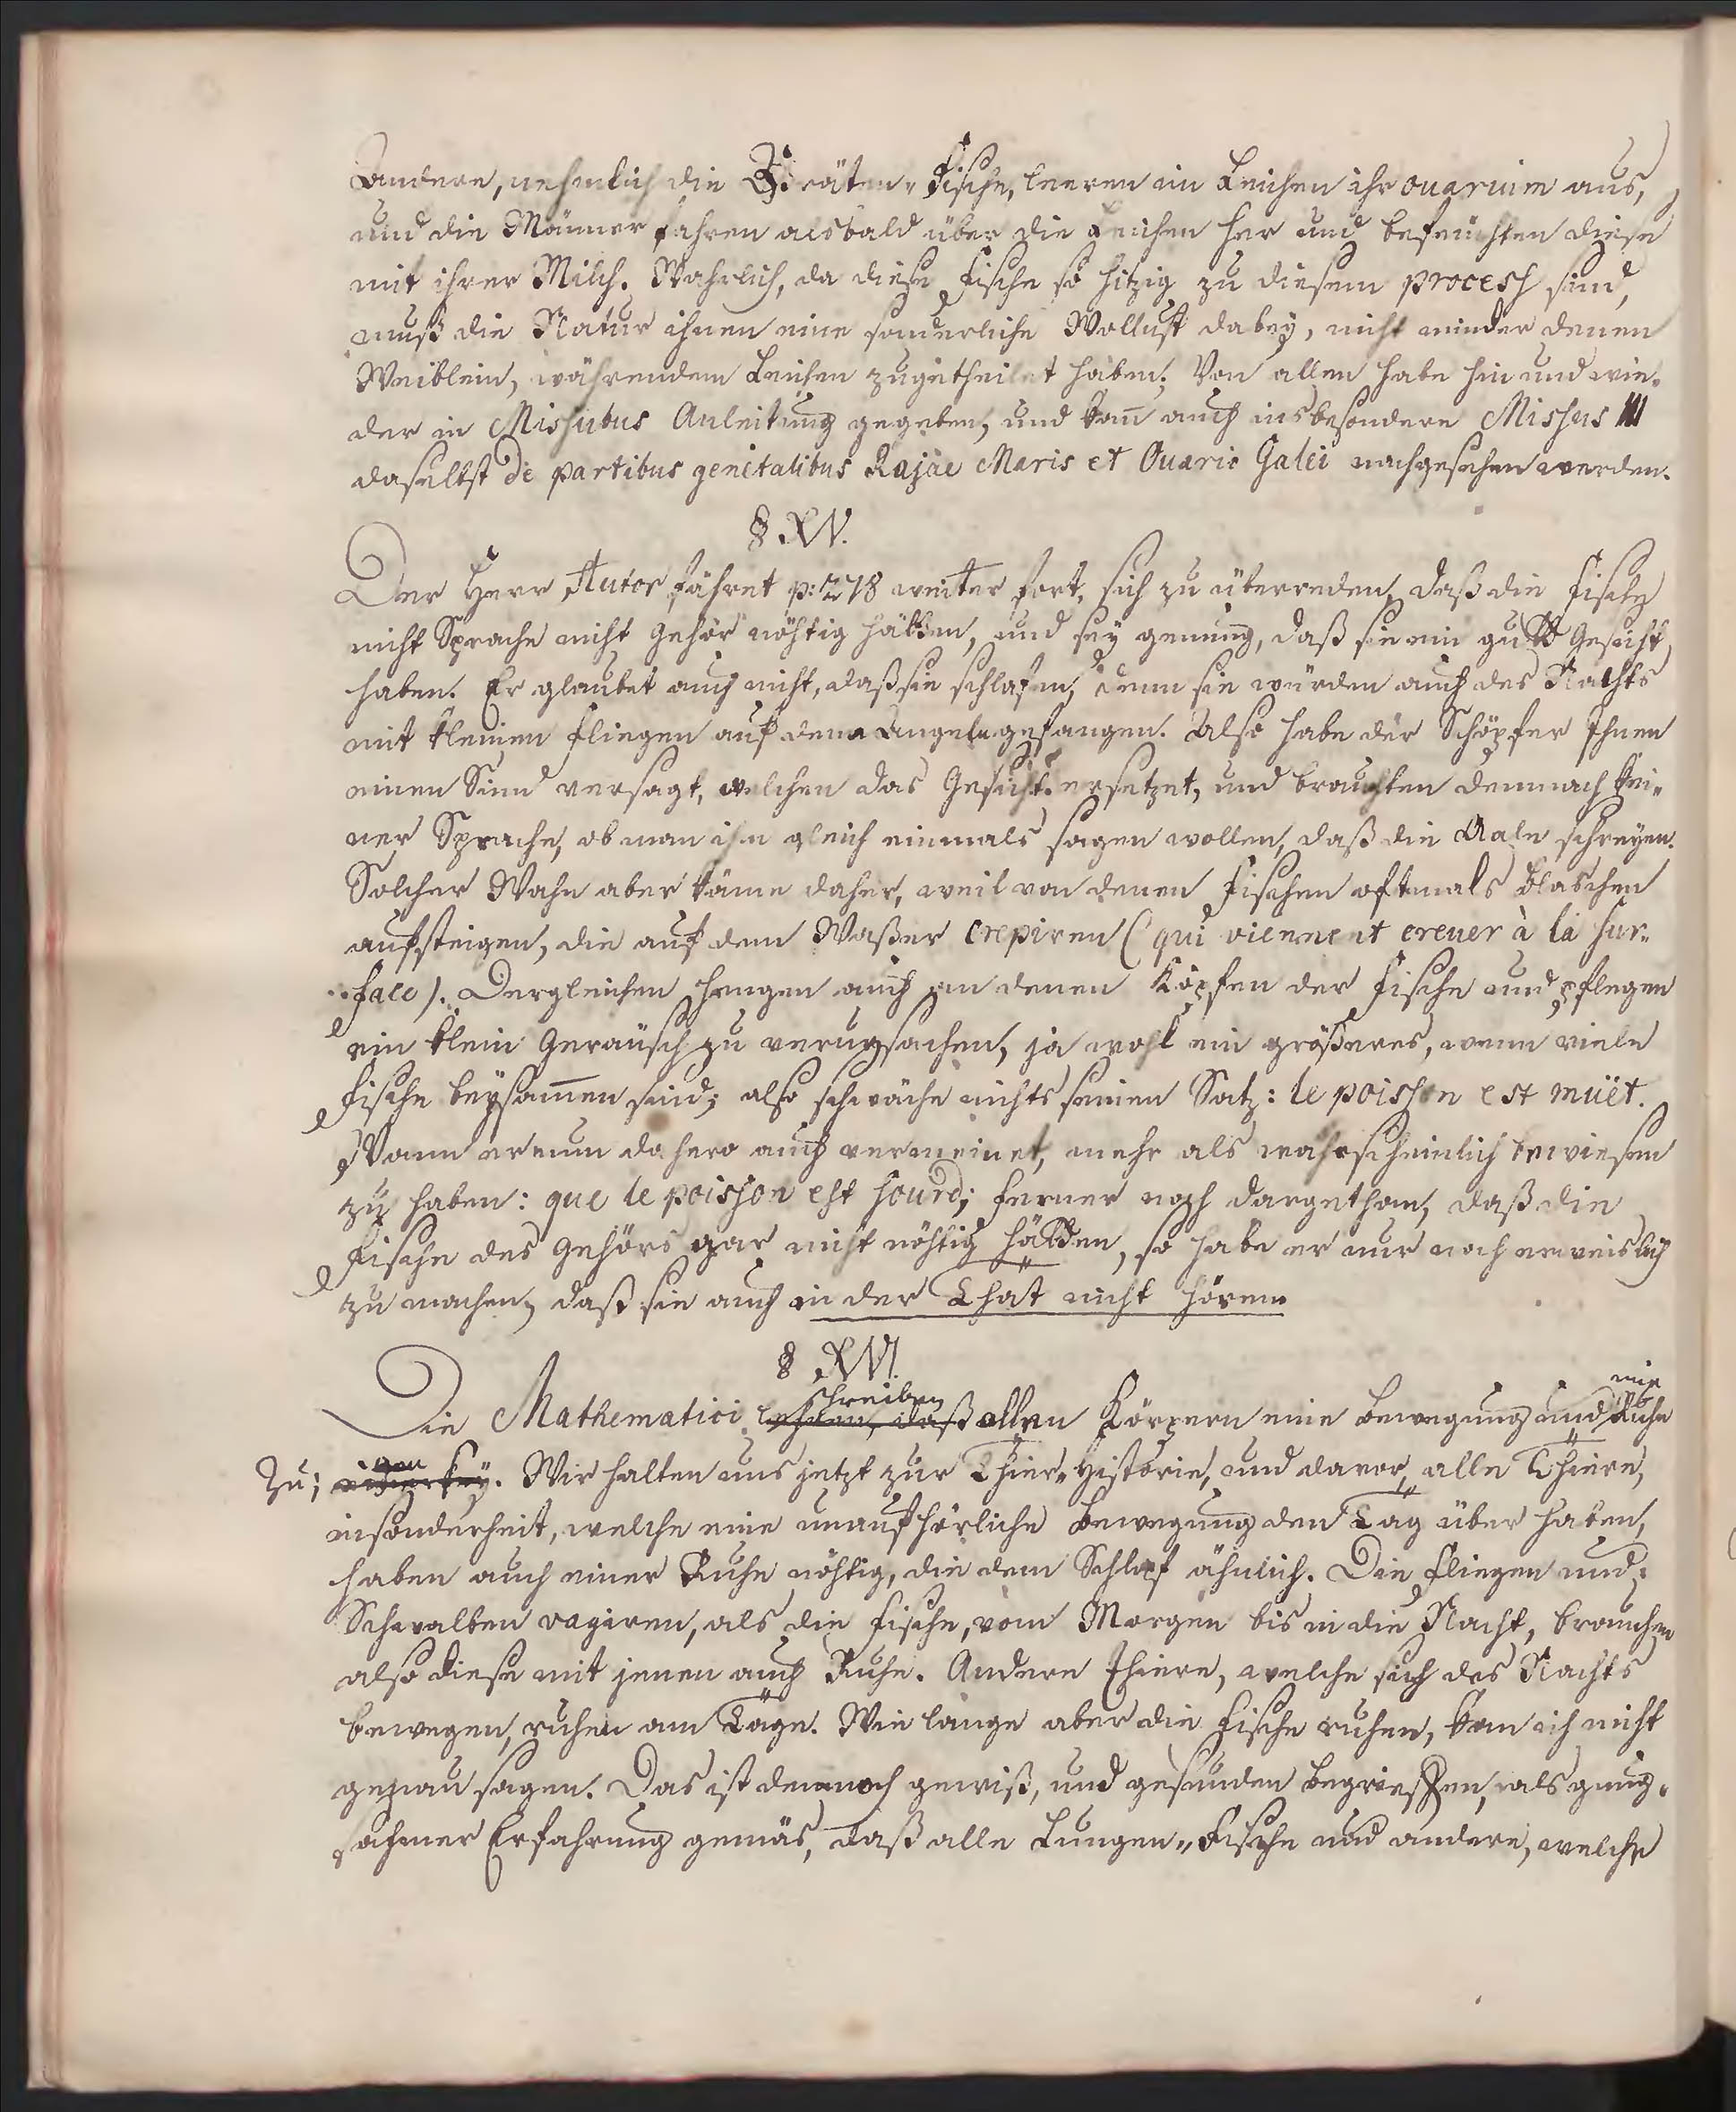 Andere, nehmlich die Gräten-Fische, leeren im Leichen ihr ovarium aus,
und die Männer fahren alsbald über die Leichen her und befeuchten diese
mit ihrer Milch. Wahrlich, da diese Fische so hitzig zu diesem process sind,
muß die Natur ihnen eine sonderliche Wollust dabey, nicht minder denen
Weiblein, währendem Leichen zugetheilet haben. Von allen habe hin und wie-
der in Missubus Anleitung gegeben, und kan auch insbesondere Missus III
daselbst de partibus genitalibus Rajae Maris et Ovario Galei nachgesehen werden.
§. XV.
Der Herr Autor fähret p: 278 weiter fort, sich zu überreden, daß die Fische
nicht Sprache nicht Gehör nöhtig hätten, und sey genung, daß sie ein gutes Gesicht
haben. Er glaubet auch nicht, daß sie schlafen, denn sie würden auch des Nachts
mit kleinen Fliegen auf dem Angel gefangen. Also habe der Schöpfer Ihnen
einen Sinn versagt, welchen das Gesicht ersetzet, und brauchten demnach kei-
ner Sprache, ob man ihm gleich einmals sagen wollen, daß die Aale schreyen.
Solcher Wahn aber käme daher, weil von denen Fischen oftmals Blaschen
aufsteigen, die auf dem Waßer crepiren (qui viennent crever à la sur-
face). Dergleichen hengen auch an denen Köpfen der Fische und pflegen
ein klein Geräusch zu verursachen, ja wohl ein größeres, wenn viele
Fische beysam̄en sind; also schwäche nichts seinen Satz: le poisson est muët.
Wann er nun dahero auch vermeinet, mehr als wahrscheinlich bewiesen
zu haben: que le poisson est sourd; ferner noch dargethan, daß die
Fische des Gehörs gar nicht nöhtig hätten, so habe er nur noch erweislich
zu machen, daß sie auch in der That nicht hören.
§ XVI.
Die Mathematici lehren, daß schreiben allen Körpern eine Bewegung und eine Ruhe
zu; . Wir halten uns jetzt zur Thier-Historie, und davor, alle Thiere,
insonderheit, welche eine unaufhörliche Bewegung den Tag über haben,
haben auch einer Ruhe nöhtig, die dem Schlaf ähnlich. Die Fliegen und
Schwalben vagiren, als die Fische, vom Morgen bis in die Nacht, brauchen
also diese mit jenen auch Ruhe. Andere Thiere, welche sich des Nachts
bewegen, ruhen am Tage. Wie lange aber die Fische ruhen, kan ich nicht
genau sagen. Das ist dennoch gewiß, und gesunden Begriffen, als gnug-
sahmer Erfahrung gemäs, daß alle Lungen-Fische und andere, welche